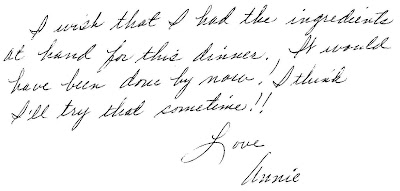 I wish that I had the ingredients
at hand for this dinner. It would
have been done by now! I think
I'll try that sometime!!
Love
Annie